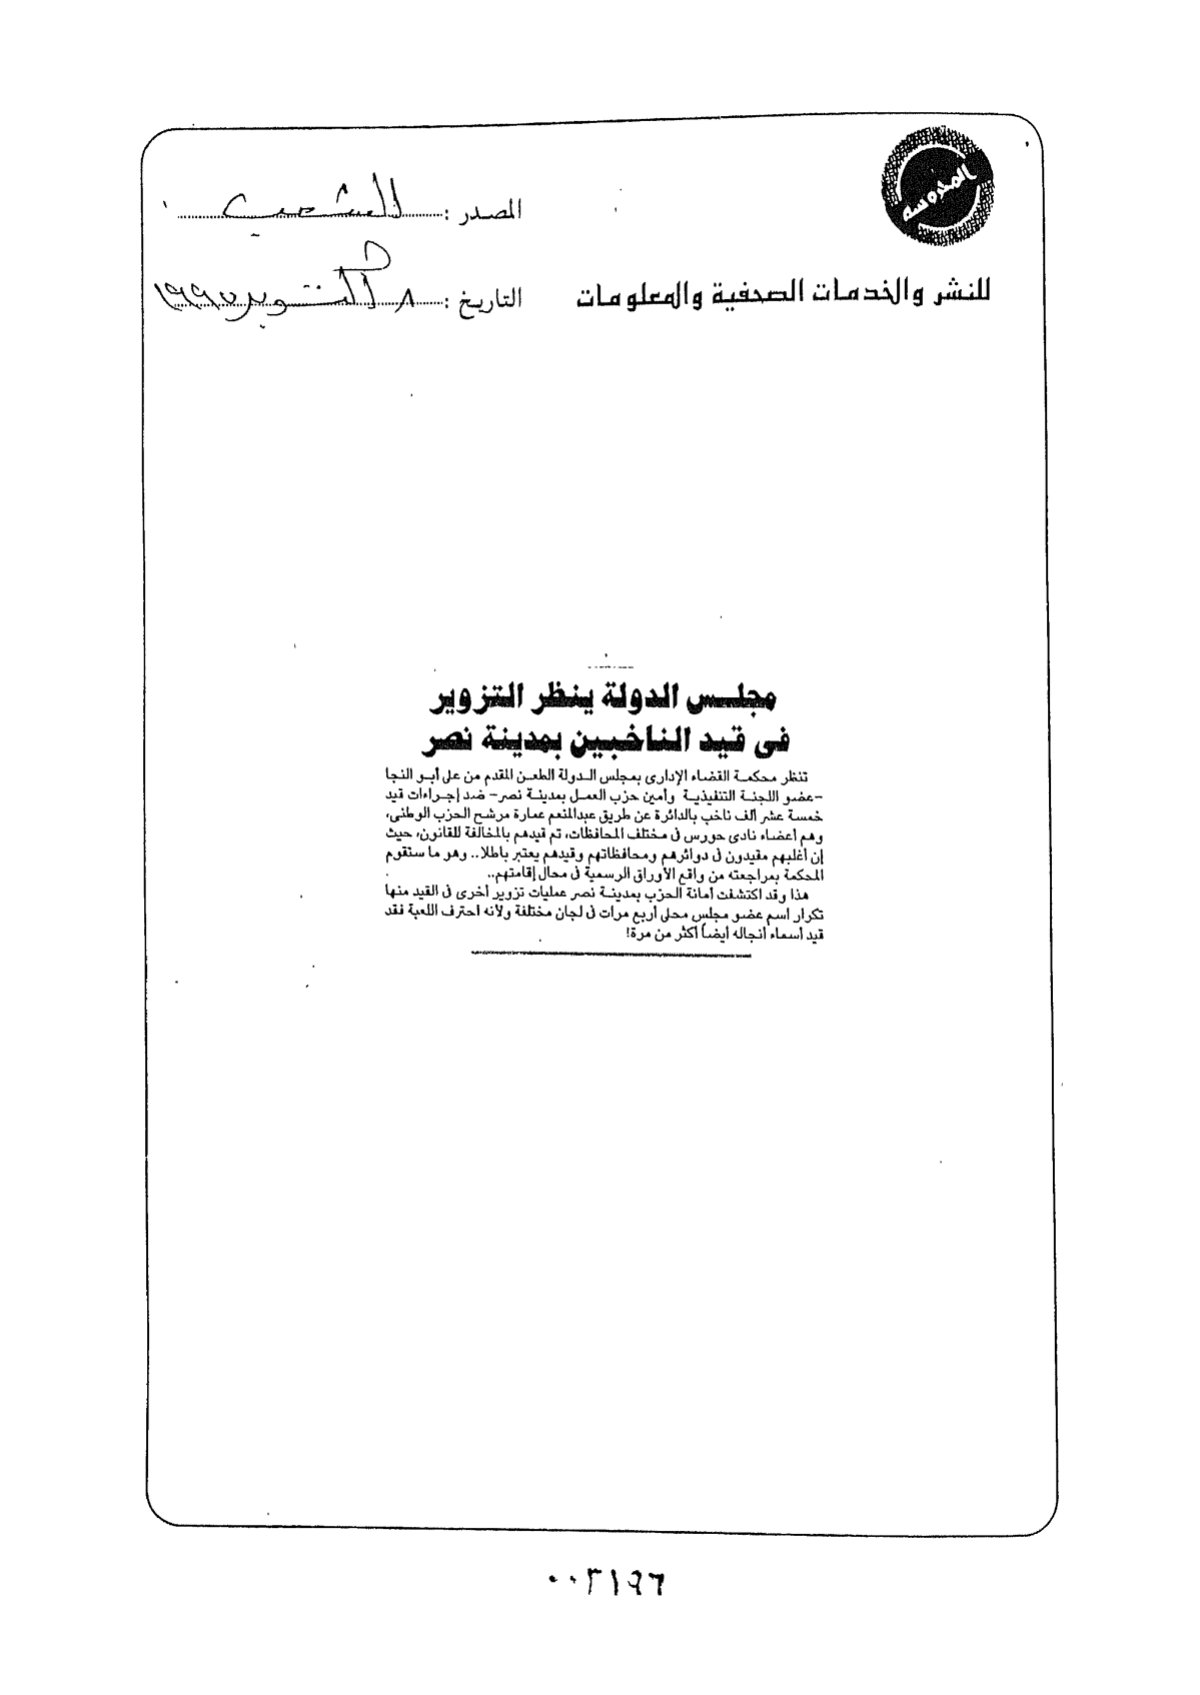 المحروسة
المصدر : الشعب
للنشر والخدمات الصحفية والمعلومات
التاريخ : ٨ أكتوبر ١٩٩٥
مجلس الدولة ينظر التزوير
فى قيد الناخبين بمدينة نصر
تنظر محكمة القضاء الإدارى بمجلس الدولة الطعن المقدم من على أبو النجا
–عضو اللجنة التنفيذية وأمين حزب العمل بمدينة نصر– ضد إجراءات قيد
خمسة عشر ألف ناخب بالدائرة عن طريق عبدالمنعم عمارة مرشح الحزب الوطنى،
وهم أعضاء نادى حورس فى مختلف المحافظات، تم قيدهم بالمخالفة للقانون، حيث
إن أغلبهم مقيدون فى دوائرهم ومحافظاتهم وقيدهم يعتبر باطلا.. وهو ما ستقوم
المحكمة بمراجعته من واقع الأوراق الرسمية فى محال إقامتهم..
هذا وقد اكتشفت أمانة الحزب بمدينة نصر عمليات تزوير أخرى فى القيد منها
تكرار اسم عضو مجلس محلى أربع مرات فى لجان مختلفة ولأنه احترف اللعبة فقد
قيد أسماء أنجاله أيضاً أكثر من مرة!
٠٠٣١٩٦